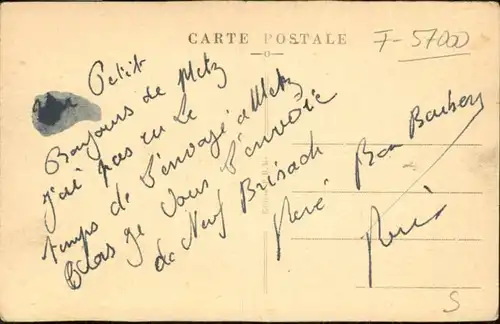 CARTE POSTALE
F-57000
Un Petit
Bonjours de Metz
j'ai pas eu Le
temps de L'envoyé a Metz
Alors Je vous L'envoie
de Neuf Brisach
René
Bon Baisers
René
S